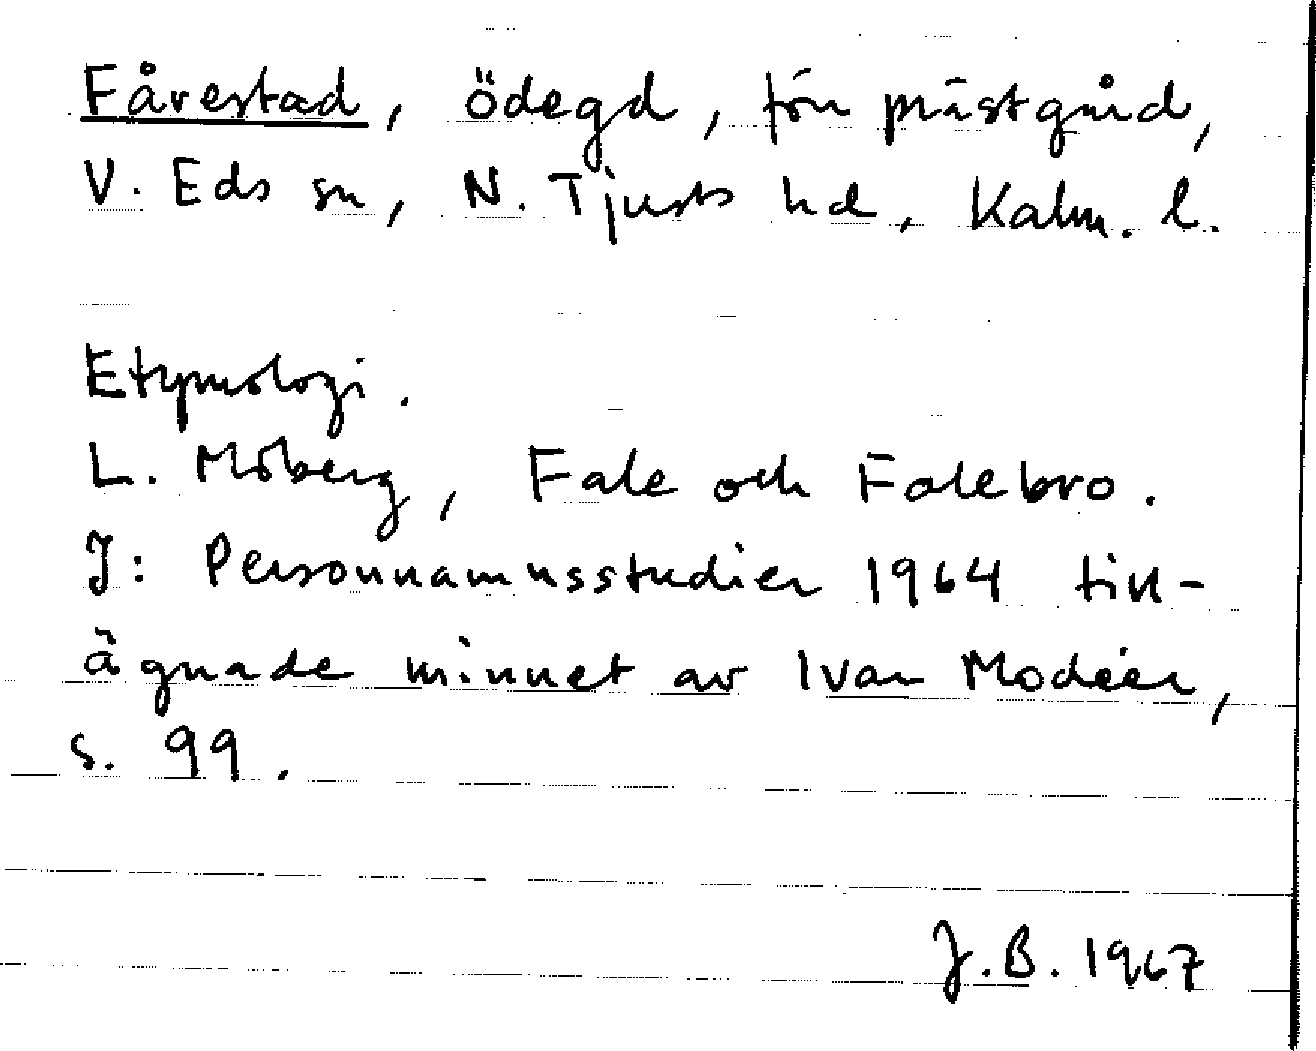 Fårestad, ödegd, förr prästgård,
V. Eds sn, N. Tjusts hd, Kalm. l.
Etymologi.
L. Moberg, Fale och Falebro.
I: Personnamnsstudier 1964 till-
ägnade minnet av Ivar Modéer,
s. 99.
J.B. 1967